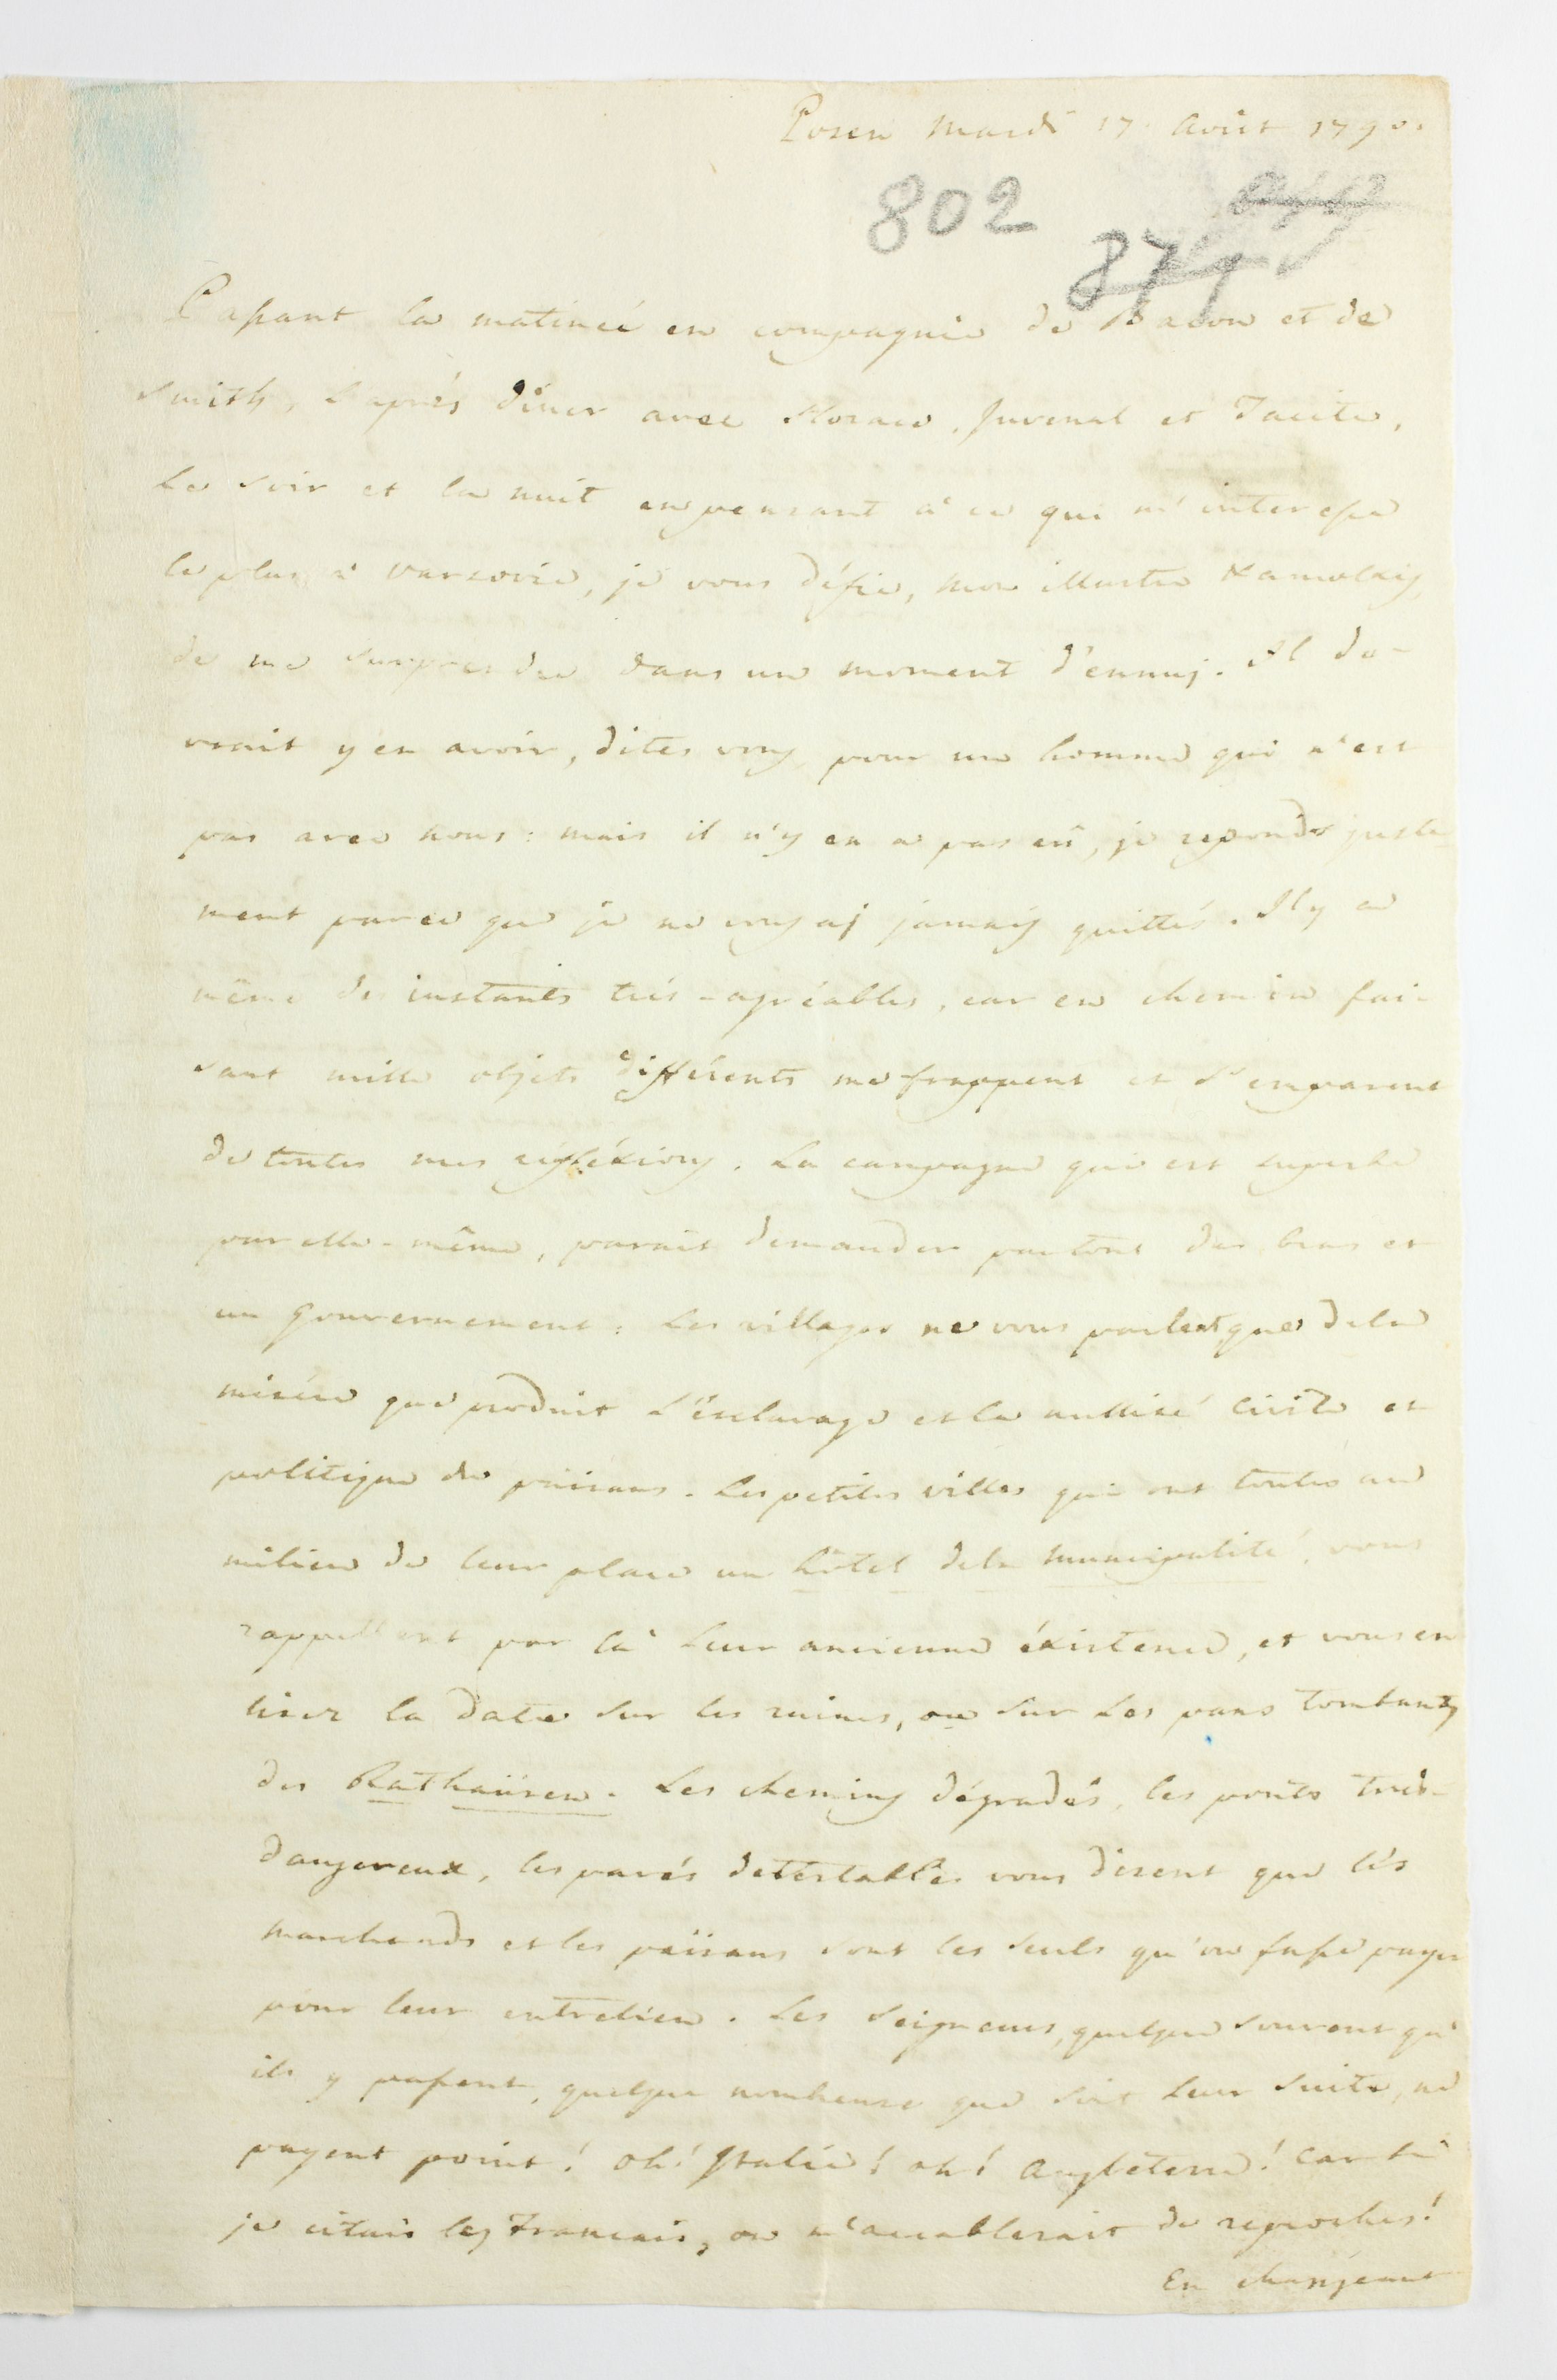 Posen Mardi 17. Août 1790.
802
874
Passant la matineé en compagnie de Bacon et de
Smith, l'aprés dîner avec Horace, Juvenal et Tacite,
Le soir et la nuit en pensant à ce qui m'interesse
le plus à Varsovie, je vous défie, mon illustre
de me surprendre dans un moment d'ennuj. Il de-
vrait y en avoir, dites vous pour un homme qui n'est
pas avec nous: mais il n'y en a pas eû, je reponds juste
ment parce que je ne vous aj jamais quittés. Il y a
même des instants trés-agréables, car en chemin fai-
sant mille objets différents me frappent et s'emparent
de toutes mes réfléxions. La campagne qui est superbe
par elle-même, parait demander partout des bras et
un gouvernement: Les villages ne vous parlent que de la
misére que produit l'ésclavage et la nullité civile et
politique des païsans. Les petites villes qui ont toutes au
milieu de leur place un hôtel de la municipalité, vous
rappellent par là leur ancienne éxistence, et vous en
lisez la date sur les ruines, ou sur les pans tombants
des Rathaüsen. Les chemins dégradés, les ponts trés-
dangereux, les pavés detéstables vous disent que les
marchands et les païsans sont les seuls qu'on fasse payer
pour leur entretien. Les Seigneurs, quelque souvent qu'
ils y passent, quelque nombreuse que soit leur suite, ne
payent point! oh! Italie! oh! Angleterre! car si
je citais les Francais, on m'accablerait de reproches!
En changeant